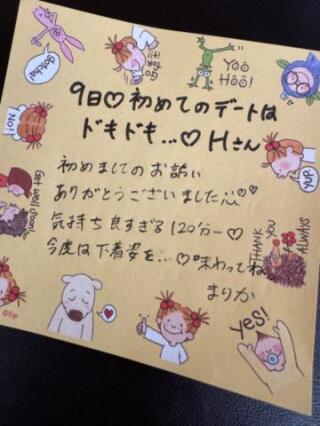 Gotcha!
GO FOR it!
YOO HOO!
NO!
YUP!
Get well soon!
THANK YOU ALWAYS
yes!
9日♡初めてのデートは
ドキドキ…♡Hさん
初めましてのお誘い
ありがとうございました♡♡
気持ち良すぎる120分ー♡
今度は下着姿を…♡味わってね
まりか